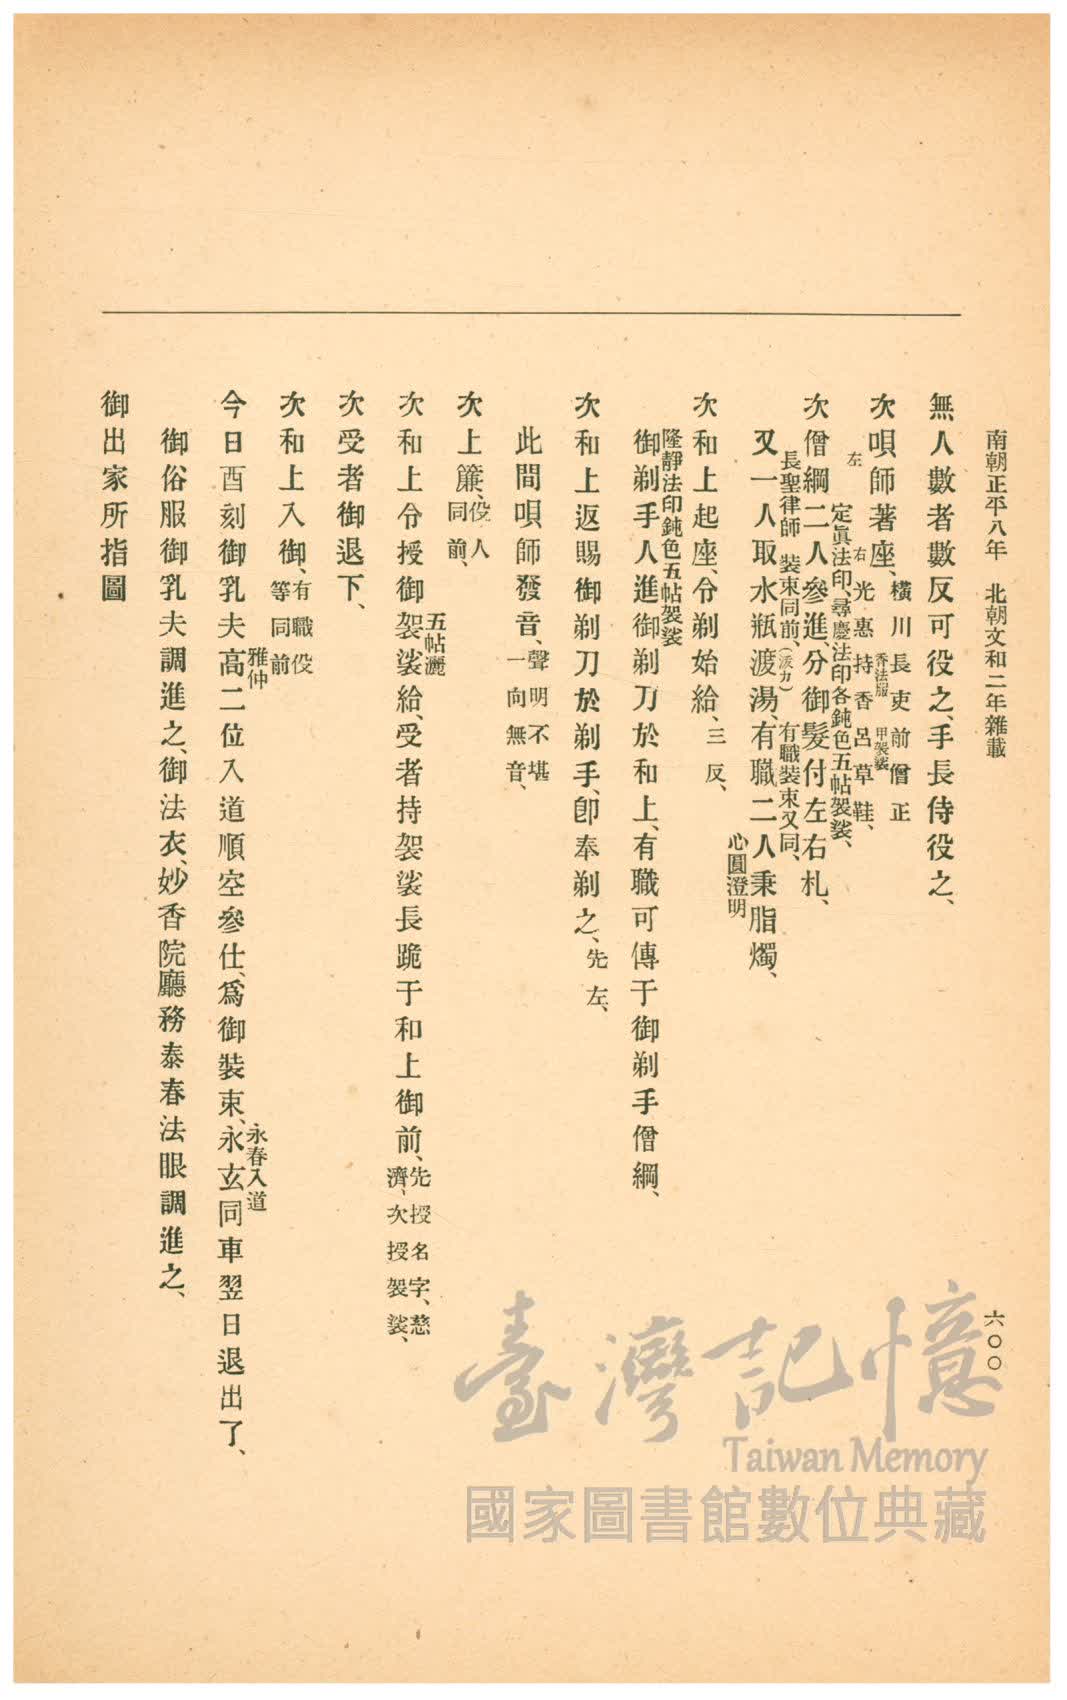 南朝正平八年　北朝文和二年雜載
六〇〇
無人數者數反可役之、手長侍役之、
次唄師著座、橫川長吏前僧正
光惠持香呂草鞋、
香法服　甲袈裟
定眞法印、尋慶法印各鈍色五帖袈裟、
左　右
次僧綱二人參進、分御髮付左右札、
長聖律師　裝束同前、(派カ)　有職裝束又同、
又一人取水瓶渡湯、有職二人秉脂燭、
心圓澄明
次和上起座、令剃始給、三反、
隆靜法印鈍色五帖袈裟
御剃手人進御剃刀於和上、有職可傳于御剃手僧綱、
次和上返賜御剃刀於剃手、卽奉剃之、先左、
此間唄師發音、聲明不堪
一向無音、
次上簾、役人
同前、
五帖灑
次和上令授御袈裟給、受者持袈裟長跪于和上御前、先授名字、慈
濟、次授袈裟、
次受者御退下、
次和上入御、有職役
等同前
雅仲　永春入道
今日酉刻御乳夫高二位入道順空參仕、爲御裝束、永玄同車翌日退出了、
御俗服御乳夫調進之、御法衣、妙香院廳務泰春法眼調進之、
御出家所指圖
臺灣記憶
Taiwan Memory
國家圖書館數位典藏